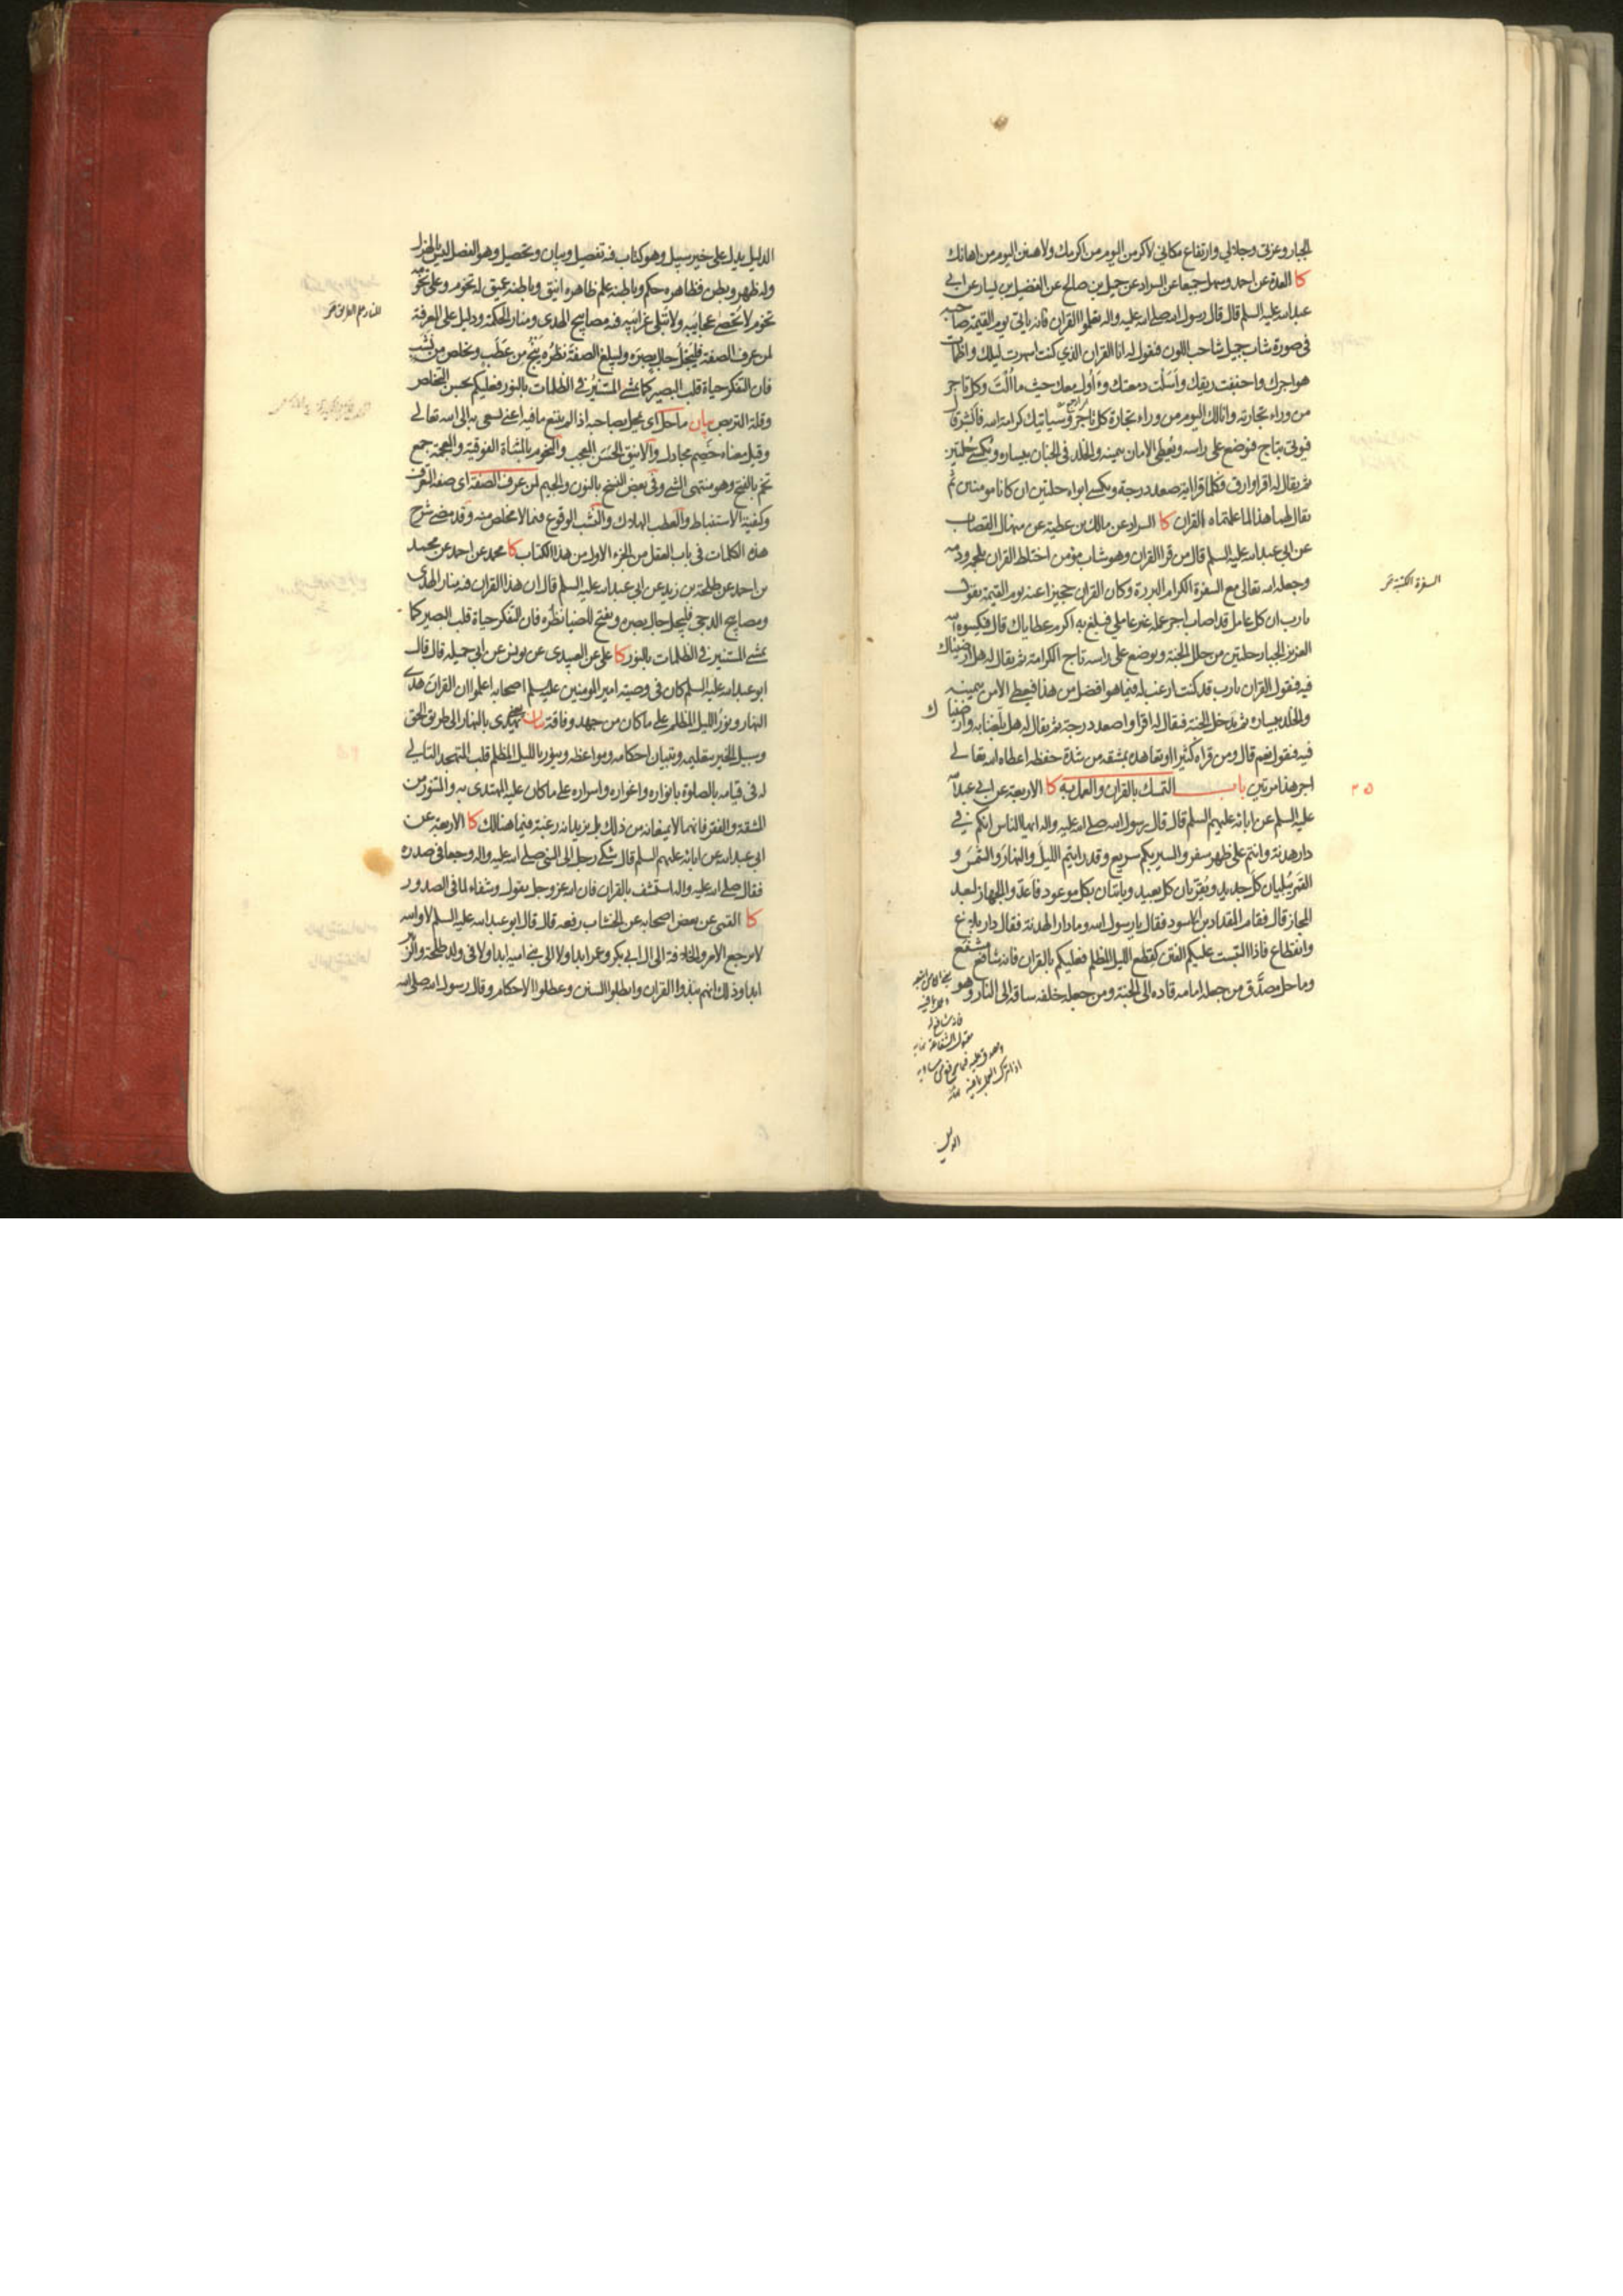 الجبار وعزتي وجلالي وارتفاع مكاني لاكرمن اليوم من اكرمك ولاهينن اليوم من اهانك
كا العدة عن احمد وسهل جميعا عن السراد عن جميل بن صالح عن الفضيل بن يسار عن ابي
عبدالله عليه السلم قال قال رسول الله صلى الله عليه واله تعلموا القران فانه ياتي يوم القيمة صاحبه
في صورة شاب جميل شاحب اللون فيقول له انا القران الذي كنت اسهرت ليلك واظمات
هواجرك واجففت ريقك واَسَلْت دمعتك وَاَُول معك حيث ما اُلْتَ وكل تاجر
من وراء تجارته وانا لك اليوم من وراء تجارة كل تاجر وسياتيك كرامة الله فاَبْشِر قال
فيوتى بتاج فيوضع على راسه ويُعطى الامان بيمينه والخلد في الجنان بيساره ويُكسى حُلتين
ثم يقال له اقرا وارق فكلما قرا اية صعد درجة ويكسى ابواه حلتين ان كانا مومنين ثم
يقال لهما هذا لما علمتماه القران كا السراد عن مالك بن عطية عن منهال القصاب
عن ابي عبد الله عليه السلم قال من قرا القران وهو شاب مؤمن اختلط القران بلحمه ودمه
وجعله الله تعالى مع السفرة الكرام البررة وكان القران حجيزا عنه يوم القيمة يقول
يارب ان كل عامل قد اصاب اجر عمله غير عاملي فبلغ به اكرم عطاياك قال فيكسوه الله
العزيز الجبار حلتين من حلل الجنة ويوضع على راسه تاج الكرامة ثم يقال له هل ارضيناك
فيه فيقول القران يارب قد كنت ارغب له فيما هو افضل من هذا فيعطى الامن بيمينه
والخلد بيساره ثم يدخل الجنة فيقال له اقرا واصعد درجة ثم يقال له هل بلغنا به وارضيناك
فيه فيقول نعم قال ومن قراه كثيرا او تعاهده بمشقة من شدة حفظه اعطاه الله تعالى
اجر هذا مرتين باب التمسك بالقران والعمل به كا الاربعة عن ابي عبدالله
عليه السلم عن ابائه عليهم السلم قال قال رسول الله صلى الله عليه واله ايها الناس انكم في
دار هدنة وانتم على ظهر سفر والسير بكم سريع وقد رايتم الليلَ والنهارَ والشمسَ و
القمرَ يُبليان كلَّ جديد ويُقرّبان كل بعيد وياتيان بكل موعود فاَعدّوا الجهاز لبعد
المجاز قال فقام المقداد بن الاسود فقال يا رسول الله وما دار الهدنة فقال دار بلاغ
وانقطاع فاذا التبست عليكم الفتن كقطع الليل المظلم فعليكم بالقران فانه شافع مشفع
وماحل مصدَّق من جعله امامه قاده الى الجنة ومن جعله خلفه ساقه الى النار وهو
السفرة الكتبة
۲۵
فانه شافع له
مقبول الشفاعة
الدليل
الدليل يدل على خير سبيل وهو كتاب فيه تفصيل وبيان وتحصيل وهو الفصل ليس بالهزل
وله ظهر وبطن فظاهره حكم وباطنه علم ظاهره انيق وباطنه عميق له تخوم وعلى تخومه
تخوم لا تُحصى عجايبه ولا تبلى غرايبه فيه مصابيح الهدى ومنار الحكمة ودليل على المعرفة
لمن عرف الصفة فليَجْلُ جالٍ بصره وليبلغ الصفةَ نظرُه يَنْجُ من عَطَبٍ ويخلص من نَشَب
فان التفكر حياة قلب البصير كما يمشي المستنير في الظلمات بالنور فعليكم بحسن التخلص
وقلة التربص بيان ماحل اي يمحل بصاحبه اذا لم يتبع ما فيه اعني يسعى به الى الله تعالى
وقيل معناه خَصِم مجادل والانيق الحَسَن المعجب والتخوم بالمثناة الفوقية والمعجمة جمع
تخم بالفتح وهو منتهى الشي وفي بعض النسخ بالنون والجيم لمن عرف الصفة اي صفة التعرف
وكيفية الاستنباط والعطب الهلاك والنشب الوقوع فيما لا مخلص منه وقد مضى شرح
هذه الكلمات في باب العقل من الجزء الاول من هذا الكتاب كا محمد عن احمد عن محمد
بن احمد عن طلحة بن زيد عن ابي عبد الله عليه السلم قال ان هذا القران فيه منار الهدى
ومصابيح الدجى فليجل جال بصره ويفتح للضيا نظره فان التفكر حياة قلب البصير كما
يمشي المستنير في الظلمات بالنور كا علي عن العبيدي عن يونس عن ابي جميلة قال قال
ابو عبدالله عليه السلم كان في وصية امير المومنين عليه السلم اصحابه اعلموا ان القران هُدى
النهار ونورُ الليل المظلم على ما كان من جهد وفاقة بيان يعني يهدي بالنهار الى طريق الحق
وسبيل الخير بتعليمه وتبيان احكامه ومواعظه وينور بالليل المظلم قلب المتهجد التالي
له في قيامه بالصلوة بانواره واغواره واسراره على ما كان عليه المهتدي به والمتنور من
المشقة والفقر فانهما لا يمنعانه من ذلك بل يزيدانه رغبة فيما هنالك كا الاربعة عن
ابي عبدالله عن ابائه عليهم السلم قال شكى رجل الى النبي صلى الله عليه واله وجعا في صدره
فقال صلى الله عليه واله استشف بالقران فان الله عز وجل يقول وشفاء لما في الصدور
كا القمي عن بعض اصحابه عن الخشاب رفعه قال قال ابو عبد الله عليه السلم لا والله
لا يرجع الامر والخلافة الى ال ابي بكر وعمر ابدا ولا الى بني امية ابدا ولا في ولد طلحة والزبير
ابدا وذلك انهم نبذوا القران وابطلوا السنن وعطلوا الاحكام وقال رسول الله صلى الله